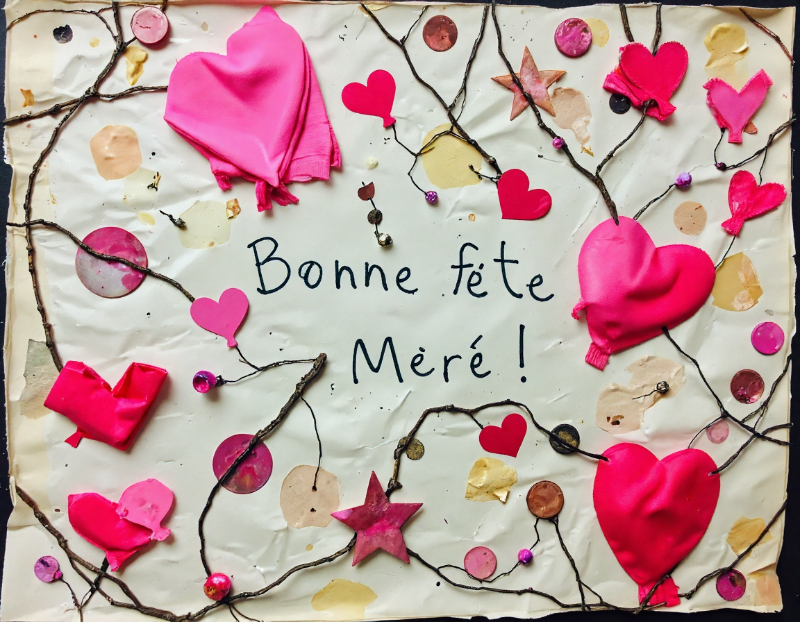 Bonne fête
Mèré !